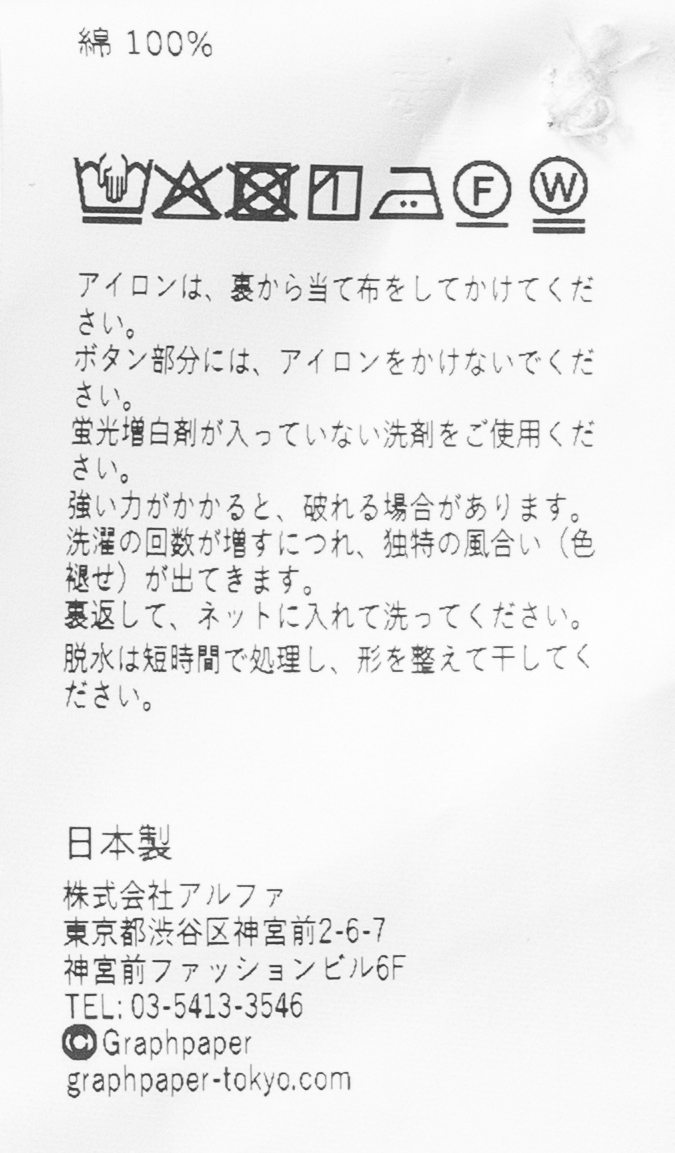 綿 100%
F W
アイロンは、裏から当て布をしてかけてくだ
さい。
ボタン部分には、アイロンをかけないでくだ
さい。
蛍光増白剤が入っていない洗剤をご使用くだ
さい。
強い力がかかると、破れる場合があります。
洗濯の回数が増すにつれ、独特の風合い（色
褪せ）が出てきます。
裏返して、ネットに入れて洗ってください。
脱水は短時間で処理し、形を整えて干してく
ださい。
日本製
株式会社アルファ
東京都渋谷区神宮前2-6-7
神宮前ファッションビル6F
TEL: 03-5413-3546
Graphpaper
graphpaper-tokyo.com